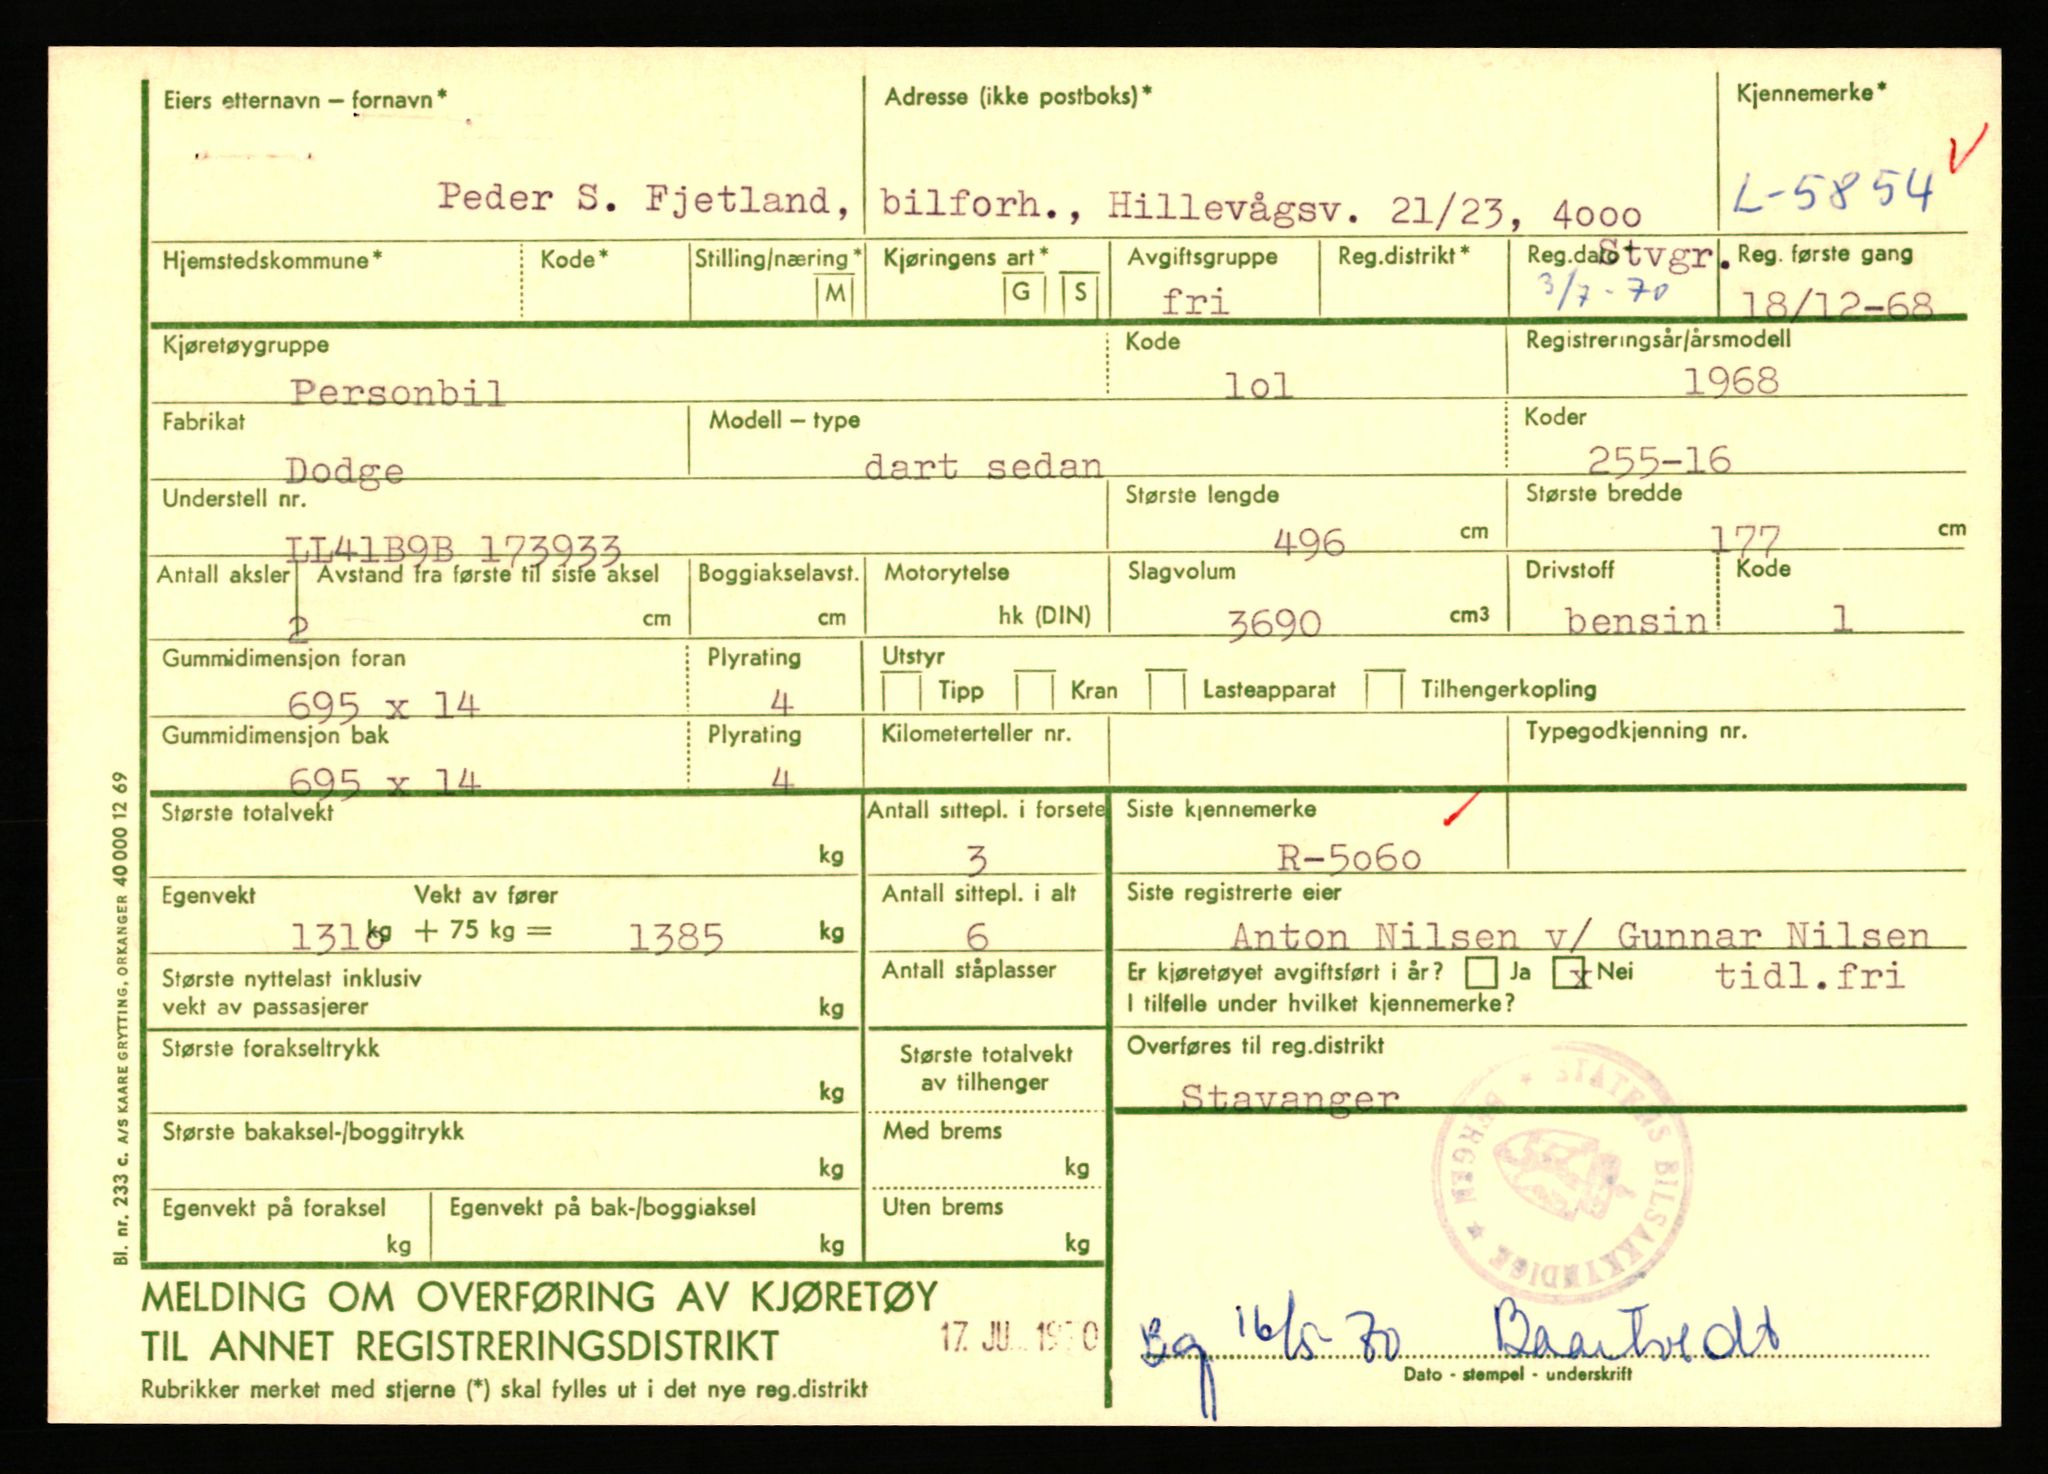 Eiers etternavn – fornavn* Adresse (ikke postboks)* Kjennemerke*
Peder S. Fjetland, bilforh., Hillevågsv. 21/23, 4000 L-5854
Stvgr.
Hjemstedskommune* Kode* Stilling/næring* Kjøringens art* Avgiftsgruppe Reg.distrikt* Reg.dato Reg. første gang
M G S fri 3/7-70 18/12-68
Kjøretøygruppe Kode Registreringsår/årsmodell
Personbil lol 1968
Fabrikat Modell – type Koder
Dodge dart sedan 255-16
Understell nr. Største lengde Største bredde
LL41B9B 173933 496 cm 177 cm
Antall aksler Avstand fra første til siste aksel Boggiakselavst. Motorytelse Slagvolum Drivstoff Kode
2 cm cm hk (DIN) 3690 cm3 bensin 1
Gummidimensjon foran Plyrating Utstyr
695 x 14 4 Tipp Kran Lasteapparat Tilhengerkopling
Gummidimensjon bak Plyrating Kilometerteller nr. Typegodkjenning nr.
695 x 14 4
Største totalvekt Antall sittepl. i forsete Siste kjennemerke
kg 3 R-5060
Egenvekt Vekt av fører Antall sittepl. i alt Siste registrerte eier
1310 kg + 75 kg = 1385 kg 6 Anton Nilsen v/ Gunnar Nilsen
Største nyttelast inklusiv Antall ståplasser Er kjøretøyet avgiftsført i år? Ja x Nei tidl.fri
vekt av passasjerer kg I tilfelle under hvilket kjennemerke?
Største forakseltrykk Største totalvekt Overføres til reg.distrikt
kg av tilhenger Stavanger
Største bakaksel-/boggitrykk Med brems
kg kg
Egenvekt på foraksel Egenvekt på bak-/boggiaksel Uten brems
kg kg kg
STATENS BILSAKKYNDIGE * BERGEN *
MELDING OM OVERFØRING AV KJØRETØY
TIL ANNET REGISTRERINGSDISTRIKT 17. JU 1970 Bg 16/5-70 Baartvedt
Dato - stempel - underskrift
Rubrikker merket med stjerne (*) skal fylles ut i det nye reg.distrikt
Bl. nr. 233 c. A/S KAARE GRYTTING, ORKANGER 40 000 12 69